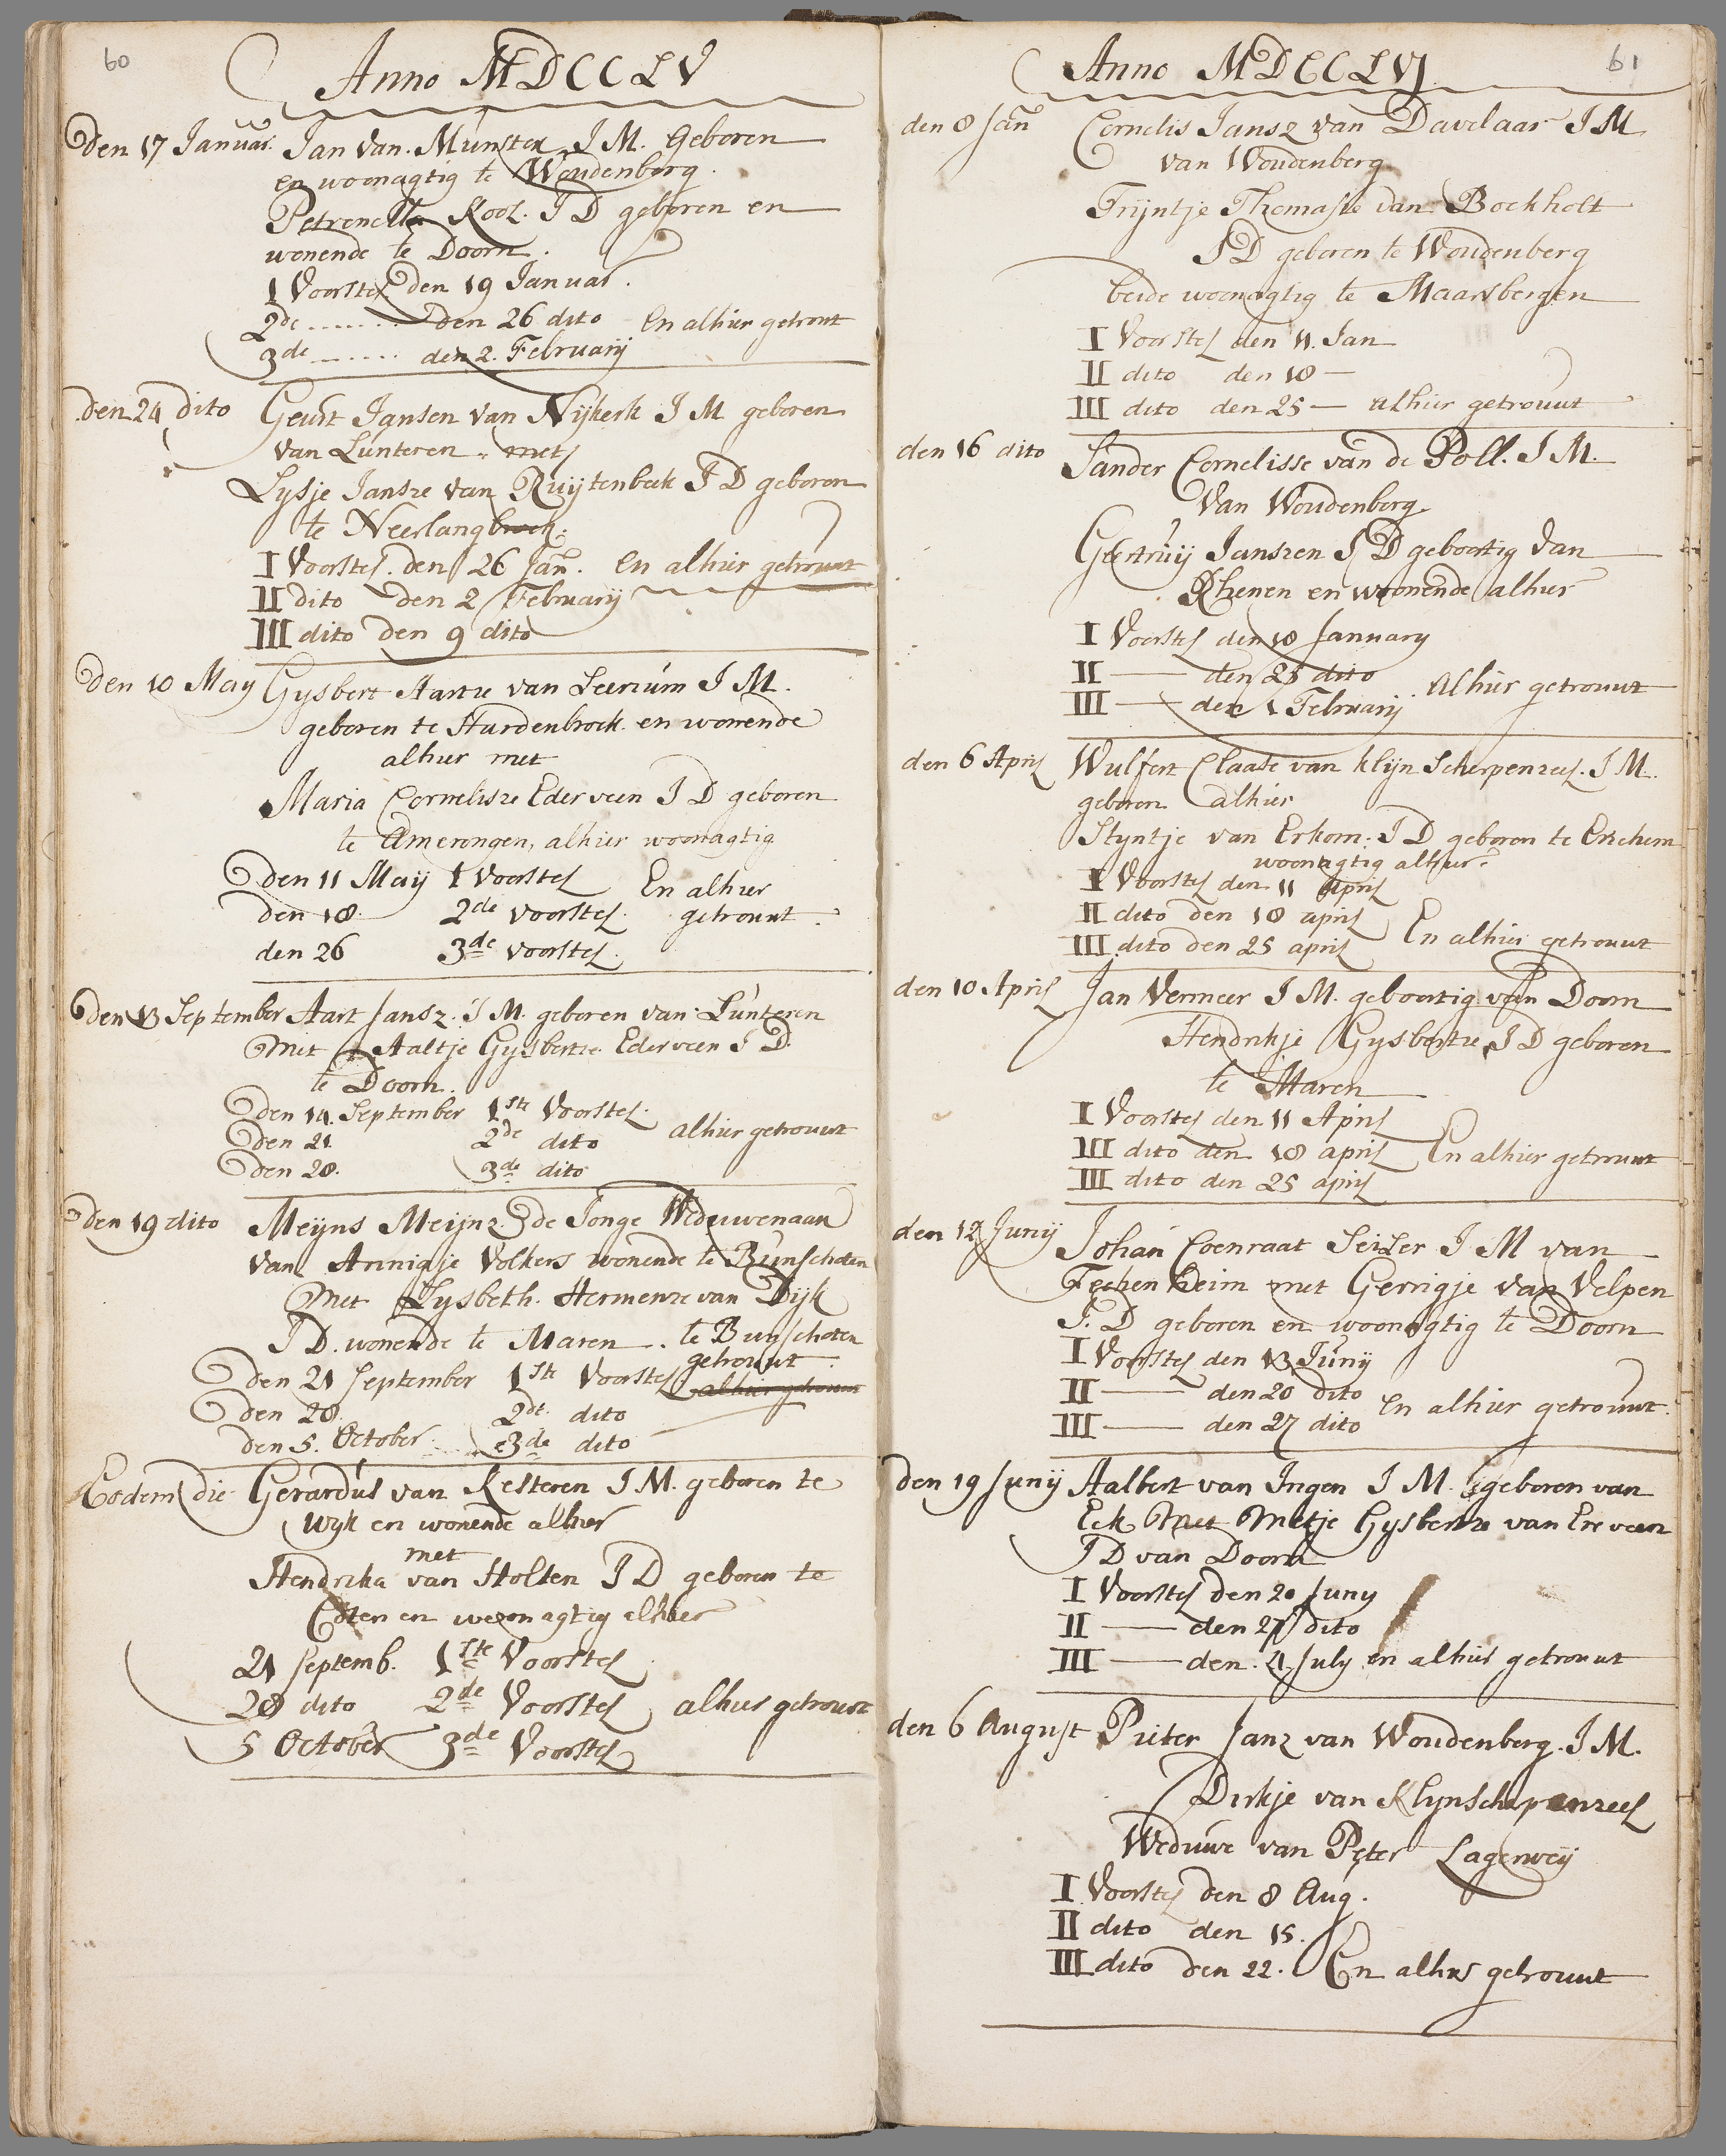 60
Anno MDCCLV
Den 17 Januar. Jan van Munster J M. Geboren
en woonagtig te Woudenberg.
Petronella Kool. J D geboren en
wonende te Doorn.
1 Voorstel den 19 Januar.
2de ....... den 26 dito En alhier getrout
3de ....... den 2. February
den 24 dito Geurt Jansen van Nijkerk J M geboren
van Lunteren. met
Lysje Jansze van Ruijtenbeek J D geboren
te Neerlangbroek.
I Voorstel. den 26 Jan. En alhier getrouwt
II dito den 2 February
III dito den 9 dito
Den 10 May Gysbert Aartze van Leersum J M.
geboren te Hardenbroek. en wonende
alhier met
Maria Cornelisze Ederveen J D geboren
te Amerongen, alhier woonagtig
Den 11 Maij 1 Voorstel En alhier
den 18. 2de voorstel. getrouwt.
den 26 3de voorstel.
Den 13 September Aart Jansz. J M. geboren van Lunteren
Met Aaltje Gysbertze Ederveen J D.
te Doorn.
Den 14. September 1ste Voorstel.
Den 21. 2de dito alhier getrouwt
Den 28. 3de dito
Den 19 dito Meijns Meijnz. de Jonge Weduwenaan
van Annigje Volkers wonende te Bunschoten
Met Lysbeth. Hermenze van Dijk
J D. wonende te Maren. te Bunschoten
getrouwt.
Den 21 September 1ste Voorstel alhier getrouwt
Den 28. 2de dito
Den 5. October. 3de dito
Eodem die Gerardus van Kesteren J M. geboren te
Wyk en wonende alhier
met
Hendrika van Holten J D geboren te
Coten en woonagtig alhier
21 Septemb. 1ste Voorstel
28 dito 2de Voorstel alhier getrouwt
5 October 3de Voorstel
61
Anno MDCCLVI
den 8 Jan Cornelis Jansz van Davelaar J M
van Woudenberg
Trijntje Thomasse van Bockholt
J D geboren te Woudenberg
beide woonagtig te Maarsbergen
I Voorstel den 11. Jan
II dito den 18 —
III dito den 25 — alhier getrouwt
den 16 dito Sander Cornelisse van de Poll. J M.
van Woudenberg.
Geertruij Janszen J D geboortig van
Rhenen en woonende alhier
I Voorstel den 18 January
II — den 25 dito
III — den 1 February. Alhier getrouwt
den 6 April Wulfert Claase van klijn Scherpenzeel. J M.
geboren alhier
Styntje van Erkom. J D geboren te Enchem
woonagtig alhier.
I Voorstel den 11 April
II dito den 18 april
III dito den 25 april En alhier getrouwt
den 10 April Jan Vermeer J M. geboortig van Doorn
Hendrikje Gysbertze J D geboren
te Maren
I Voorstel den 11 April
III dito den 18 april En alhier getrouwt
III dito den 25 april
den 12 Junij Johan Coenraat Seiler J M van
Fechenheim met Gerrigje van Velpen
J. D geboren en woonagtig te Doorn
I Voorstel den 13 Junij
II — den 20 dito
III — den 27 dito En alhier getrouwt.
den 19 Junij Aalbert van Ingen J M. geboren van
Eck Met Metje Gysbertze van Erveen
J D van Doorn
I Voorstel den 20 Juny
II — den 27 dito
III — den. 4. July en alhier getrouwt
den 6 August Pieter Janz van Woudenberg. J M.
Dirkje van Klynscherpenzeel
Weduwe van Peter Lagerweij
I Voorstel den 8 Aug.
II dito den 15.
III dito den 22. En alhier getrouwt